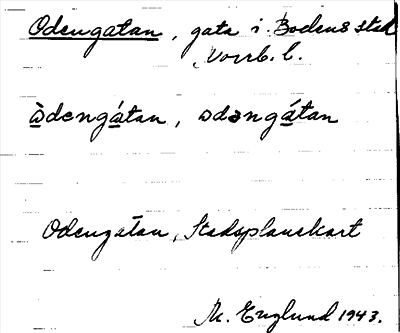 Odengatan, gata i Bodens stad
Norrb. l.
ꭃ̀dengátan, ꭃdəngátan
Odengatan, Stadsplanekart
M. Englund 1943.